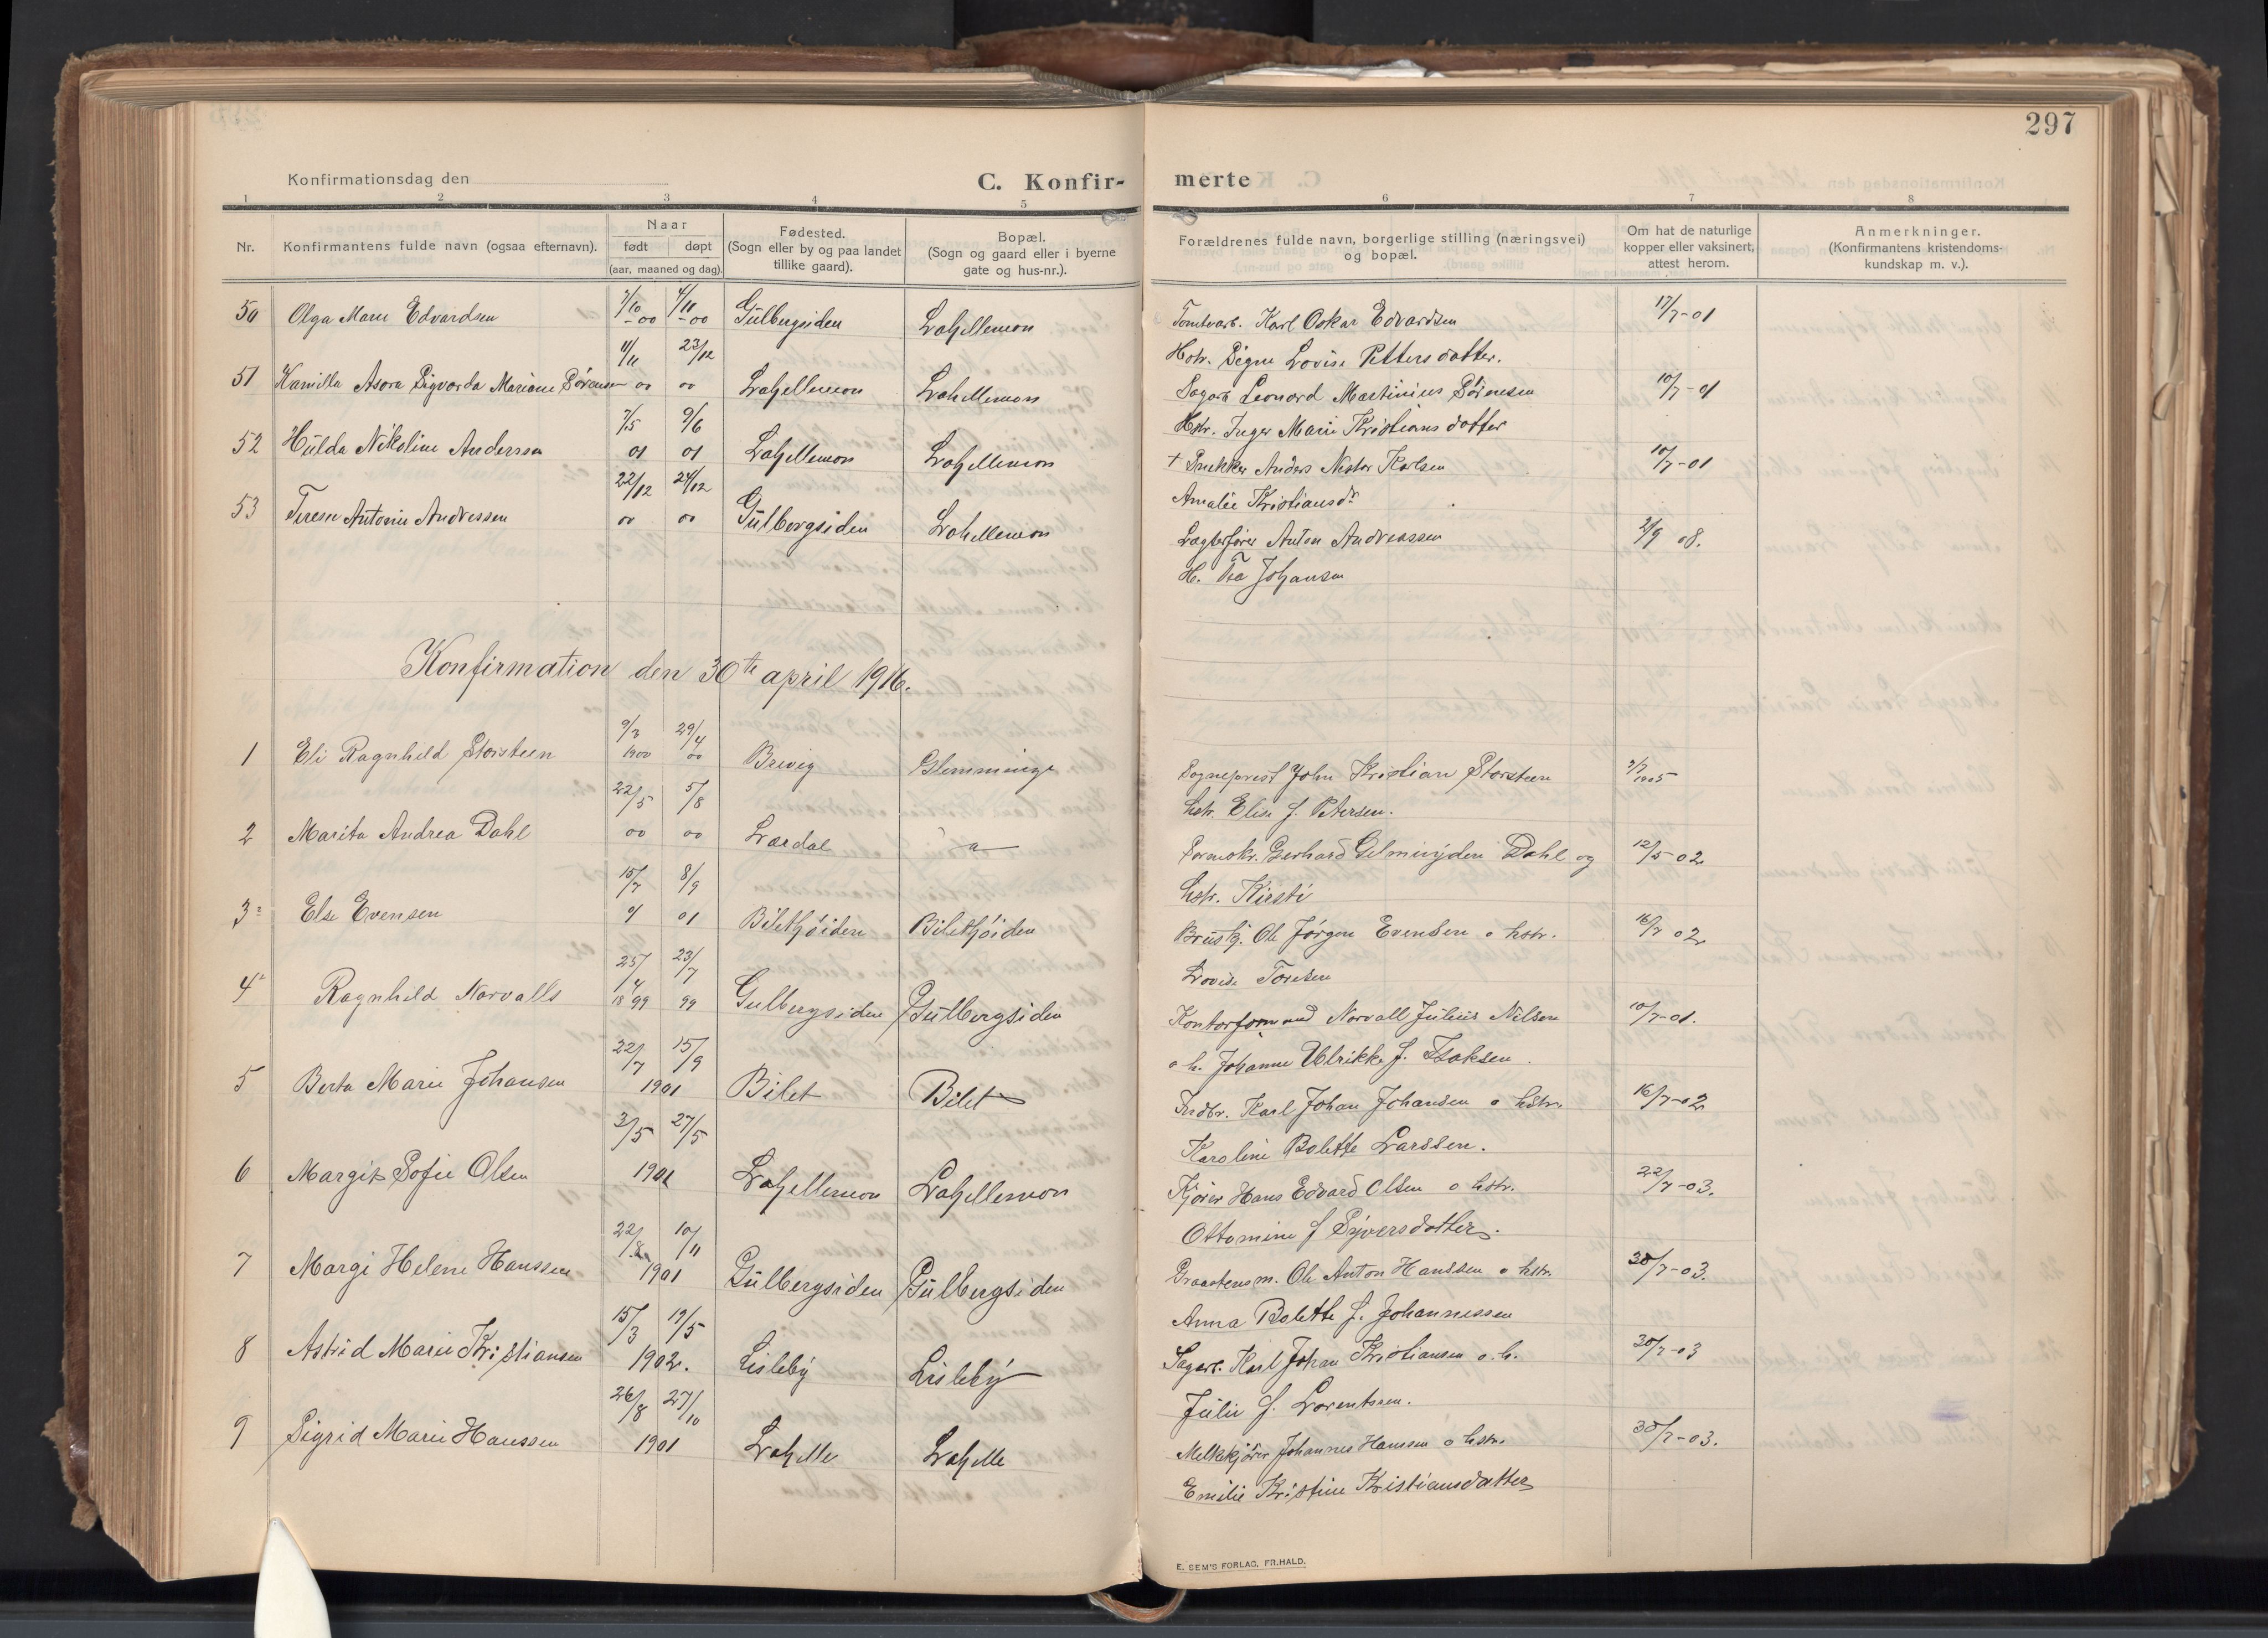 297
Konfirmationsdag den
C. Konfir- merte
1 2 3 4 5 6 7 8
Nr.
Konfirmantens fulde navn (ogsaa efternavn).
Naar
født døpt
(aar, maaned og dag).
Fødested.
(Sogn eller by og paa landet
tillike gaard).
Bopæl.
(Sogn og gaard eller i byerne
gate og hus-nr.).
Forældrenes fulde navn, borgerlige stilling (næringsvei)
og bopæl.
Om hat de naturlige
kopper eller vaksinert,
attest herom.
Anmerkninger.
(Konfirmantens kristendoms-
kundskap m. v.).
50 Olga Marie Edvardsen -00 -00 Gülbergsiden Lahellemon
Tomtearb. Karl Oskar Edvardsen 17/7-01
Hstr. Signe Lovise Pettersdatter.
11/11 23/12
51 Kamilla Asora Sigvarda Mariane Sørensen 00 00 Lahellemon Lahellemon
Sagarb Leonard Martinius Sørensen 10/7-01
Hstr. Inger Marie Kristiansdatter
7/5 9/6
52 Hülda Nikoline Andersen 01 01 Lahellemon Lahellemon
+ Snekker Anders Nestor Karlsen 10/7-01
Amalie Kristiansdr
22/12 24/12
53 Terese Antonie Andressen 00 00 Gülbergsiden Lahellemon
Lægterfører Anton Andreassen 2/9 08.
H. Tea Johansen
Konfirmation den 30te april 1916.
9/3 29/4
1 Eli Ragnhild Storsteen 1900 00 Brevig Glemminge
Sogneprest John Kristian Storsteen 3/7 1905
hstr. Elise f. Petersen.
22/5 5/8
2 Marita Andrea Dahl 00 00 Lærdal a
Gerhard Dahl og 12/5 02
hstr. Kirsti
15/7 8/9
3 Else Evensen 01 01 Bilethöiden Bilethöiden
Ole Jörgen Evensen o hstr. 16/7 02
Lovise Toresen
25/4 23/7
4 Ragnhild Norvalls 1899 99 Gulbergsiden Gülbergsiden
Kontorformand Norvall Jülius Nilsen 10/7-01.
o h. Johanne Ulrikke f. Isaksen.
22/7 15/9
5 Berta Marie Johansen 1901 Bilet Bilet
Jordbr. Karl Johan Johansen o hstr. 16/7-02
Karoline Bolette Larssen.
3/5 27/5
6 Margit Sofie Olsen 1901 Lahellemon Lahellemon
Kjører Hans Edvard Olsen o hstr. 22/7-03.
Ottomine f Syversdatter.
22/8 10/11
7 Margi Helene Hanssen 1901 Gülbergsiden Gülbergsiden
Graastensm. Ole Anton Hanssen o hstr. 30/7-03.
Anna Bolette f. Johannessen
15/3 19/5
8 Astrid Marie Kristiansen 1902. Lisleby Lisleby
Sagarb. Karl Johan Kristiansen o. h. 30/7-03
Jülie f. Lorentssen.
26/8 27/10
9 Sigrid Marie Hanssen 1901 Lahelle Lahelle
Melkekjører Johannes Hansen o hstr. 30/7-03.
Emilie Kristine Kristiansdatter
E. SEM'S FORLAG, FR.HALD.